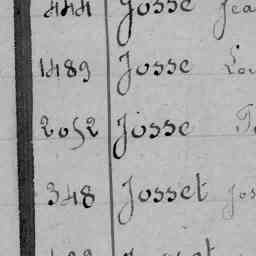 444 Josse Jea
1489 Josse Lou
2052 Josse
348 Josset Jos